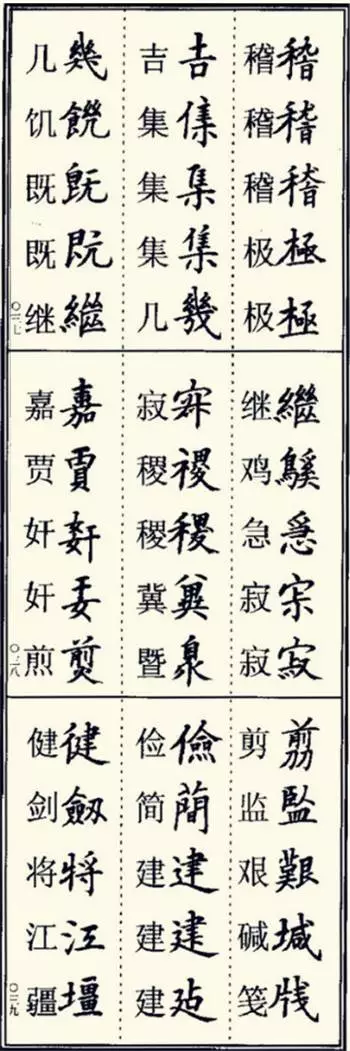 稽 稽
稽 稽
稽 稽
极 極
极 極
吉 𠮷
集
集 集
集 集
几 幾
几 幾
饥 饑
既 旣
既 既
继 繼
〇三七
继 繼
鸡
急
寂
寂 寂
寂
稷 禝
稷 稷
冀
暨
嘉 嘉
贾 賈
奸
奸
煎
〇三八
剪 翦
监 監
艰 艱
碱 堿
笺 牋
俭 儉
简 蕳
建 建
建 建
建
健 徤
剑 劔
将 将
江 江
疆 壃
〇三九